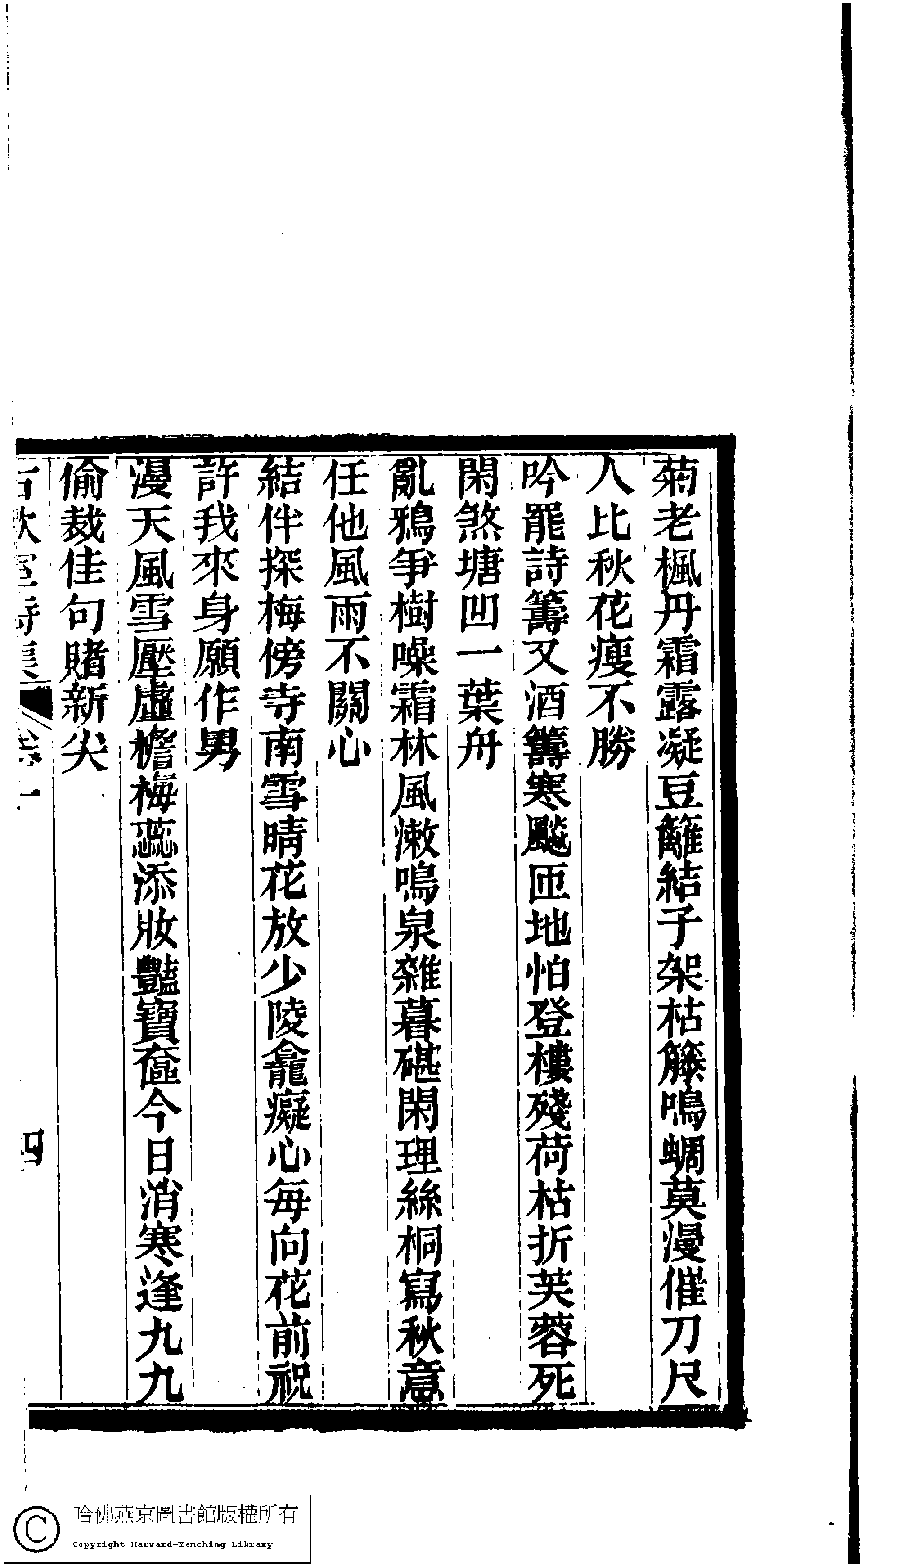 菊老楓丹霜露凝豆籬結子架枯籐鳴蜩莫漫催刀尺
人比秋花瘦不勝
吟罷詩籌又酒籌寒飈匝地怕登樓殘荷枯折芙蓉死
閑煞塘凹一葉舟
亂鴉爭樹噪霜林風潄鳴泉雜暮碪閑理絲桐寫秋意
任他風雨不關心
結伴探梅傍寺南雪晴花放少陵龕癡心每向花前祝
許我來身願作男
漫天風雪壓虛檐梅蕊添妝豔寶奩今日消寒逢九九
偷裁佳句賭新尖
四
哈佛燕京圖書館版權所有
Copyright Harvard-Yenching Library